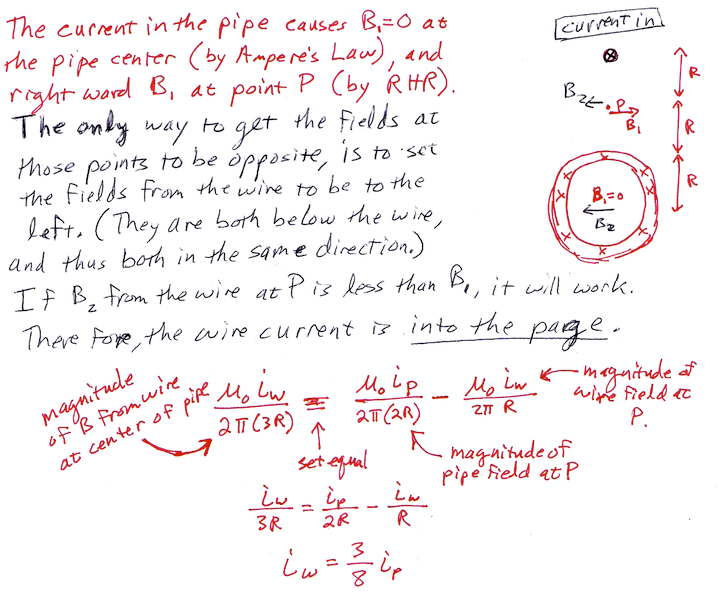 The current in the pipe causes B₁=0 at
the pipe center (by Ampere's Law), and
right ward B₁ at point P (by RHR).
The only way to get the fields at
those points to be opposite, is to set
the fields from the wire to be to the
left. (They are both below the wire,
and thus both in the same direction.)
If B₂ from the wire at P is less than B₁, it will work.
Therefore, the wire current is into the page.
current in
R
B₂ P
B₁
R
R
B₁=0
B₂
magnitude
of B from wire
at center of pipe
μ₀ i_w / 2π(3R) = μ₀ i_p / 2π(2R) − μ₀ i_w / 2π R
magnitude of
wire field at
P.
set equal
magnitude of
pipe field at P
i_w / 3R = i_p / 2R − i_w / R
i_w = 3/8 i_p